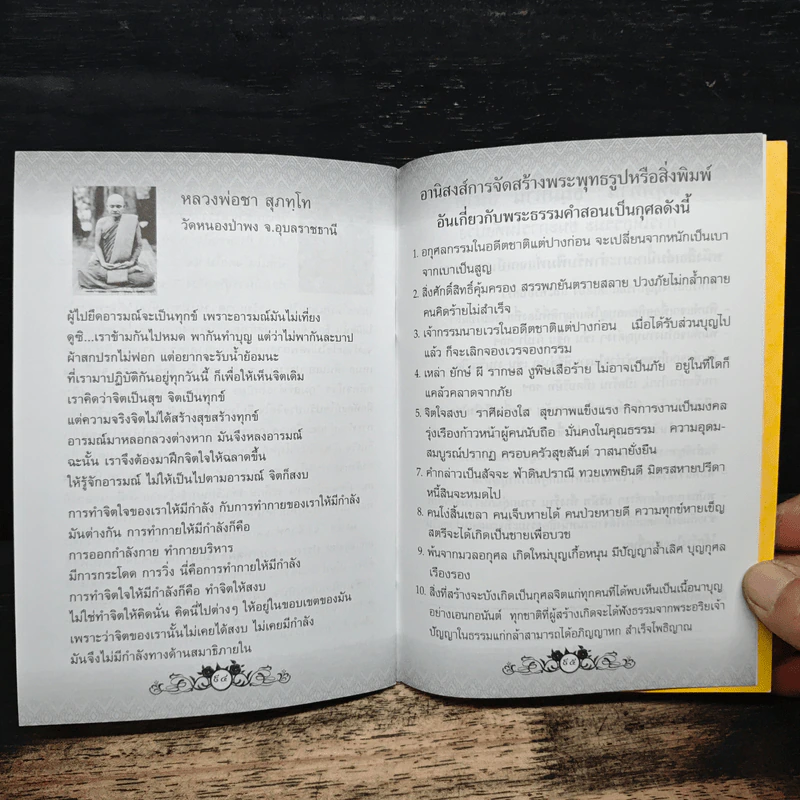 หลวงพ่อชา สุภทฺโท
วัดหนองป่าพง จ.อุบลราชธานี
ผู้ไปยึดอารมณ์จะเป็นทุกข์ เพราะอารมณ์มันไม่เที่ยง
ดูซิ...เราข้ามกันไปหมด พากันทำบุญ แต่ว่าไม่พากันละบาป
ผ้าสกปรกไม่ฟอก แต่อยากจะรับน้ำย้อมนะ
ที่เรามาปฏิบัติกันอยู่ทุกวันนี้ ก็เพื่อให้เห็นจิตเดิม
เราคิดว่าจิตเป็นสุข จิตเป็นทุกข์
แต่ความจริงจิตไม่ได้สร้างสุขสร้างทุกข์
อารมณ์มาหลอกลวงต่างหาก มันจึงหลงอารมณ์
ฉะนั้น เราจึงต้องมาฝึกจิตใจให้ฉลาดขึ้น
ให้รู้จักอารมณ์ ไม่ให้เป็นไปตามอารมณ์ จิตก็สงบ
การทำจิตใจของเราให้มีกำลัง กับการทำกายของเราให้มีกำลัง
มันต่างกัน การทำกายให้มีกำลังก็คือ
การออกกำลังกาย ทำกายบริหาร
มีการกระโดด การวิ่ง นี่คือการทำกายให้มีกำลัง
การทำจิตใจให้มีกำลังก็คือ ทำจิตให้สงบ
ไม่ใช่ทำจิตให้คิดนั่น คิดนี่ไปต่างๆ ให้อยู่ในขอบเขตของมัน
เพราะว่าจิตของเรานั้นไม่เคยได้สงบ ไม่เคยมีกำลัง
มันจึงไม่มีกำลังทางด้านสมาธิภายใน
๙๔
อานิสงส์การจัดสร้างพระพุทธรูปหรือสิ่งพิมพ์
อันเกี่ยวกับพระธรรมคำสอนเป็นกุศลดังนี้
1. อกุศลกรรมในอดีตชาติแต่ปางก่อน จะเปลี่ยนจากหนักเป็นเบา
จากเบาเป็นสูญ
2. สิ่งศักดิ์สิทธิ์คุ้มครอง สรรพภยันตรายสลาย ปวงภัยไม่กล้ำกลาย
คนคิดร้ายไม่สำเร็จ
3. เจ้ากรรมนายเวรในอดีตชาติแต่ปางก่อน เมื่อได้รับส่วนบุญไป
แล้ว ก็จะเลิกจองเวรจองกรรม
4. เหล่า ยักษ์ ผี รากษส งูพิษเสือร้าย ไม่อาจเป็นภัย อยู่ในที่ใดก็
แคล้วคลาดจากภัย
5. จิตใจสงบ ราศีผ่องใส สุขภาพแข็งแรง กิจการงานเป็นมงคล
รุ่งเรืองก้าวหน้าผู้คนนับถือ มั่นคงในคุณธรรม ความอุดม-
สมบูรณ์ปรากฏ ครอบครัวสุขสันต์ วาสนายั่งยืน
7. คำกล่าวเป็นสัจจะ ฟ้าดินปราณี ทวยเทพยินดี มิตรสหายปรีดา
หนี้สินจะหมดไป
8. คนโง่สิ้นเขลา คนเจ็บหายได้ คนป่วยหายดี ความทุกข์หายเข็ญ
สตรีจะได้เกิดเป็นชายเพื่อบวช
9. พ้นจากมวลอกุศล เกิดใหม่บุญเกื้อหนุน มีปัญญาล้ำเลิศ บุญกุศล
เรืองรอง
10. สิ่งที่สร้างจะบังเกิดเป็นกุศลจิตแก่ทุกคนที่ได้พบเห็นเป็นเนื้อนาบุญ
อย่างเอนกอนันต์ ทุกชาติที่ผู้สร้างเกิดจะได้ฟังธรรมจากพระอริยเจ้า
ปัญญาในธรรมแก่กล้าสามารถได้อภิญญาหก สำเร็จโพธิญาณ
๙๕